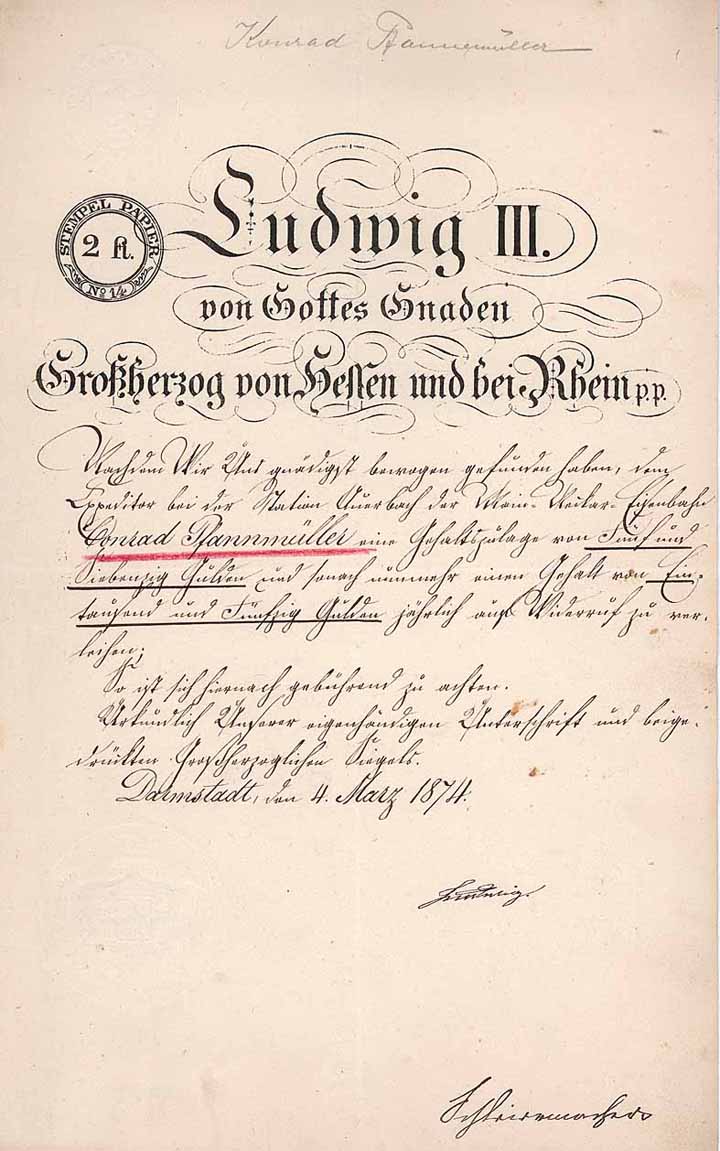 Konrad Pfannemüller
STEMPEL PAPIER
2 fl.
No 14
Ludwig III.
von Gottes Gnaden
Großherzog von Hessen und bei Rhein p.p.
Nachdem Wir Uns gnädigst bewogen gefunden haben, dem
Expeditor bei der Station Auerbach der Main-Neckar-Eisenbahn
Conrad Pfannmüller eine Gehaltszulage von Fünf und
Siebenzig Gulden und sonach nunmehr einen Gehalt von Ein-
tausend und Fünfzig Gulden jährlich auf Widerruf zu ver-
leihen;
So ist sich hiernach gebührend zu achten.
Urkundlich Unserer eigenhändigen Unterschrift und beige-
drückten Großherzoglichen Siegels.
Darmstadt, den 4. März 1874.
Ludwig.
Schleiermacher